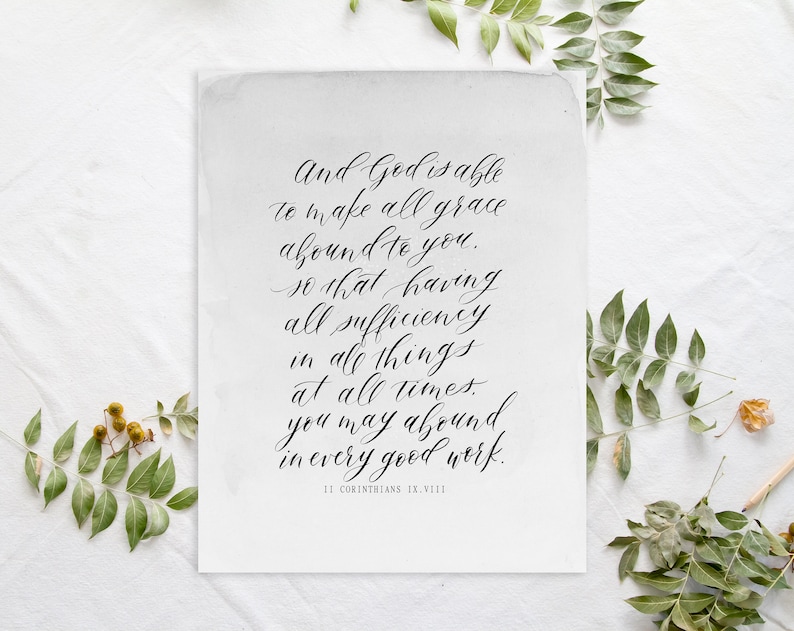 And God is able
to make all grace
abound to you,
so that having
all sufficiency
in all things
at all times,
you may abound
in every good work.
II CORINTHIANS IX.VIII